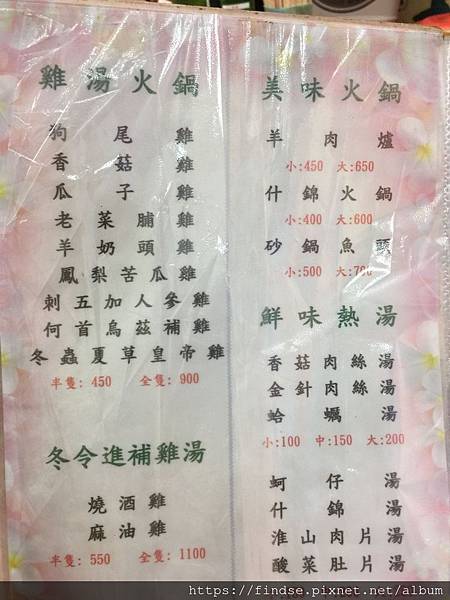 雞湯火鍋
狗尾雞
香菇雞
瓜子雞
老菜脯雞
羊奶頭雞
鳳梨苦瓜雞
刺五加人參雞
何首烏茲補雞
冬蟲夏草皇帝雞
半隻:450 全隻:900
冬令進補雞湯
燒酒雞
麻油雞
半隻:550 全隻:1100
美味火鍋
羊肉爐
小:450 大:650
什錦火鍋
小:400 大:600
砂鍋魚頭
小:500 大:700
鮮味熱湯
香菇肉絲湯
金針肉絲湯
蛤蠣湯
小:100 中:150 大:200
蚵仔湯
什錦湯
淮山肉片湯
酸菜肚片湯
https://findse.pixnet.net/album